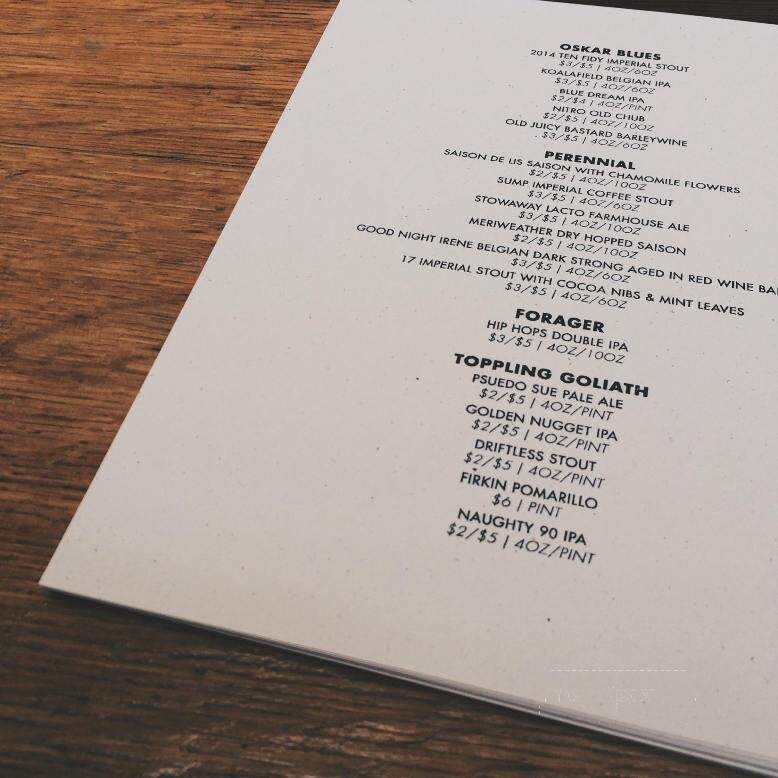 OSKAR BLUES
2014 TEN FIDY IMPERIAL STOUT
$3/$5 | 4OZ/6OZ
KOALAFIELD BELGIAN IPA
$3/$5 | 4OZ/6OZ
BLUE DREAM IPA
$2/$4 | 4OZ/PINT
NITRO OLD CHUB
$2/$5 | 4OZ/10OZ
OLD JUICY BASTARD BARLEYWINE
$3/$5 | 4OZ/6OZ
PERENNIAL
SAISON DE LIS SAISON WITH CHAMOMILE FLOWERS
$2/$5 | 4OZ/10OZ
SUMP IMPERIAL COFFEE STOUT
$3/$5 | 4OZ/6OZ
STOWAWAY LACTO FARMHOUSE ALE
$3/$5 | 4OZ/10OZ
MERIWEATHER DRY HOPPED SAISON
$2/$5 | 4OZ/10OZ
GOOD NIGHT IRENE BELGIAN DARK STRONG AGED IN RED WINE
$3/$5 | 4OZ/6OZ
17 IMPERIAL STOUT WITH COCOA NIBS & MINT LEAVES
$3/$5 | 4OZ/6OZ
FORAGER
HIP HOPS DOUBLE IPA
$3/$5 | 4OZ/10OZ
TOPPLING GOLIATH
PSUEDO SUE PALE ALE
$2/$5 | 4OZ/PINT
GOLDEN NUGGET IPA
$2/$5 | 4OZ/PINT
DRIFTLESS STOUT
$2/$5 | 4OZ/PINT
FIRKIN POMARILLO
$6 | PINT
NAUGHTY 90 IPA
$2/$5 | 4OZ/PINT